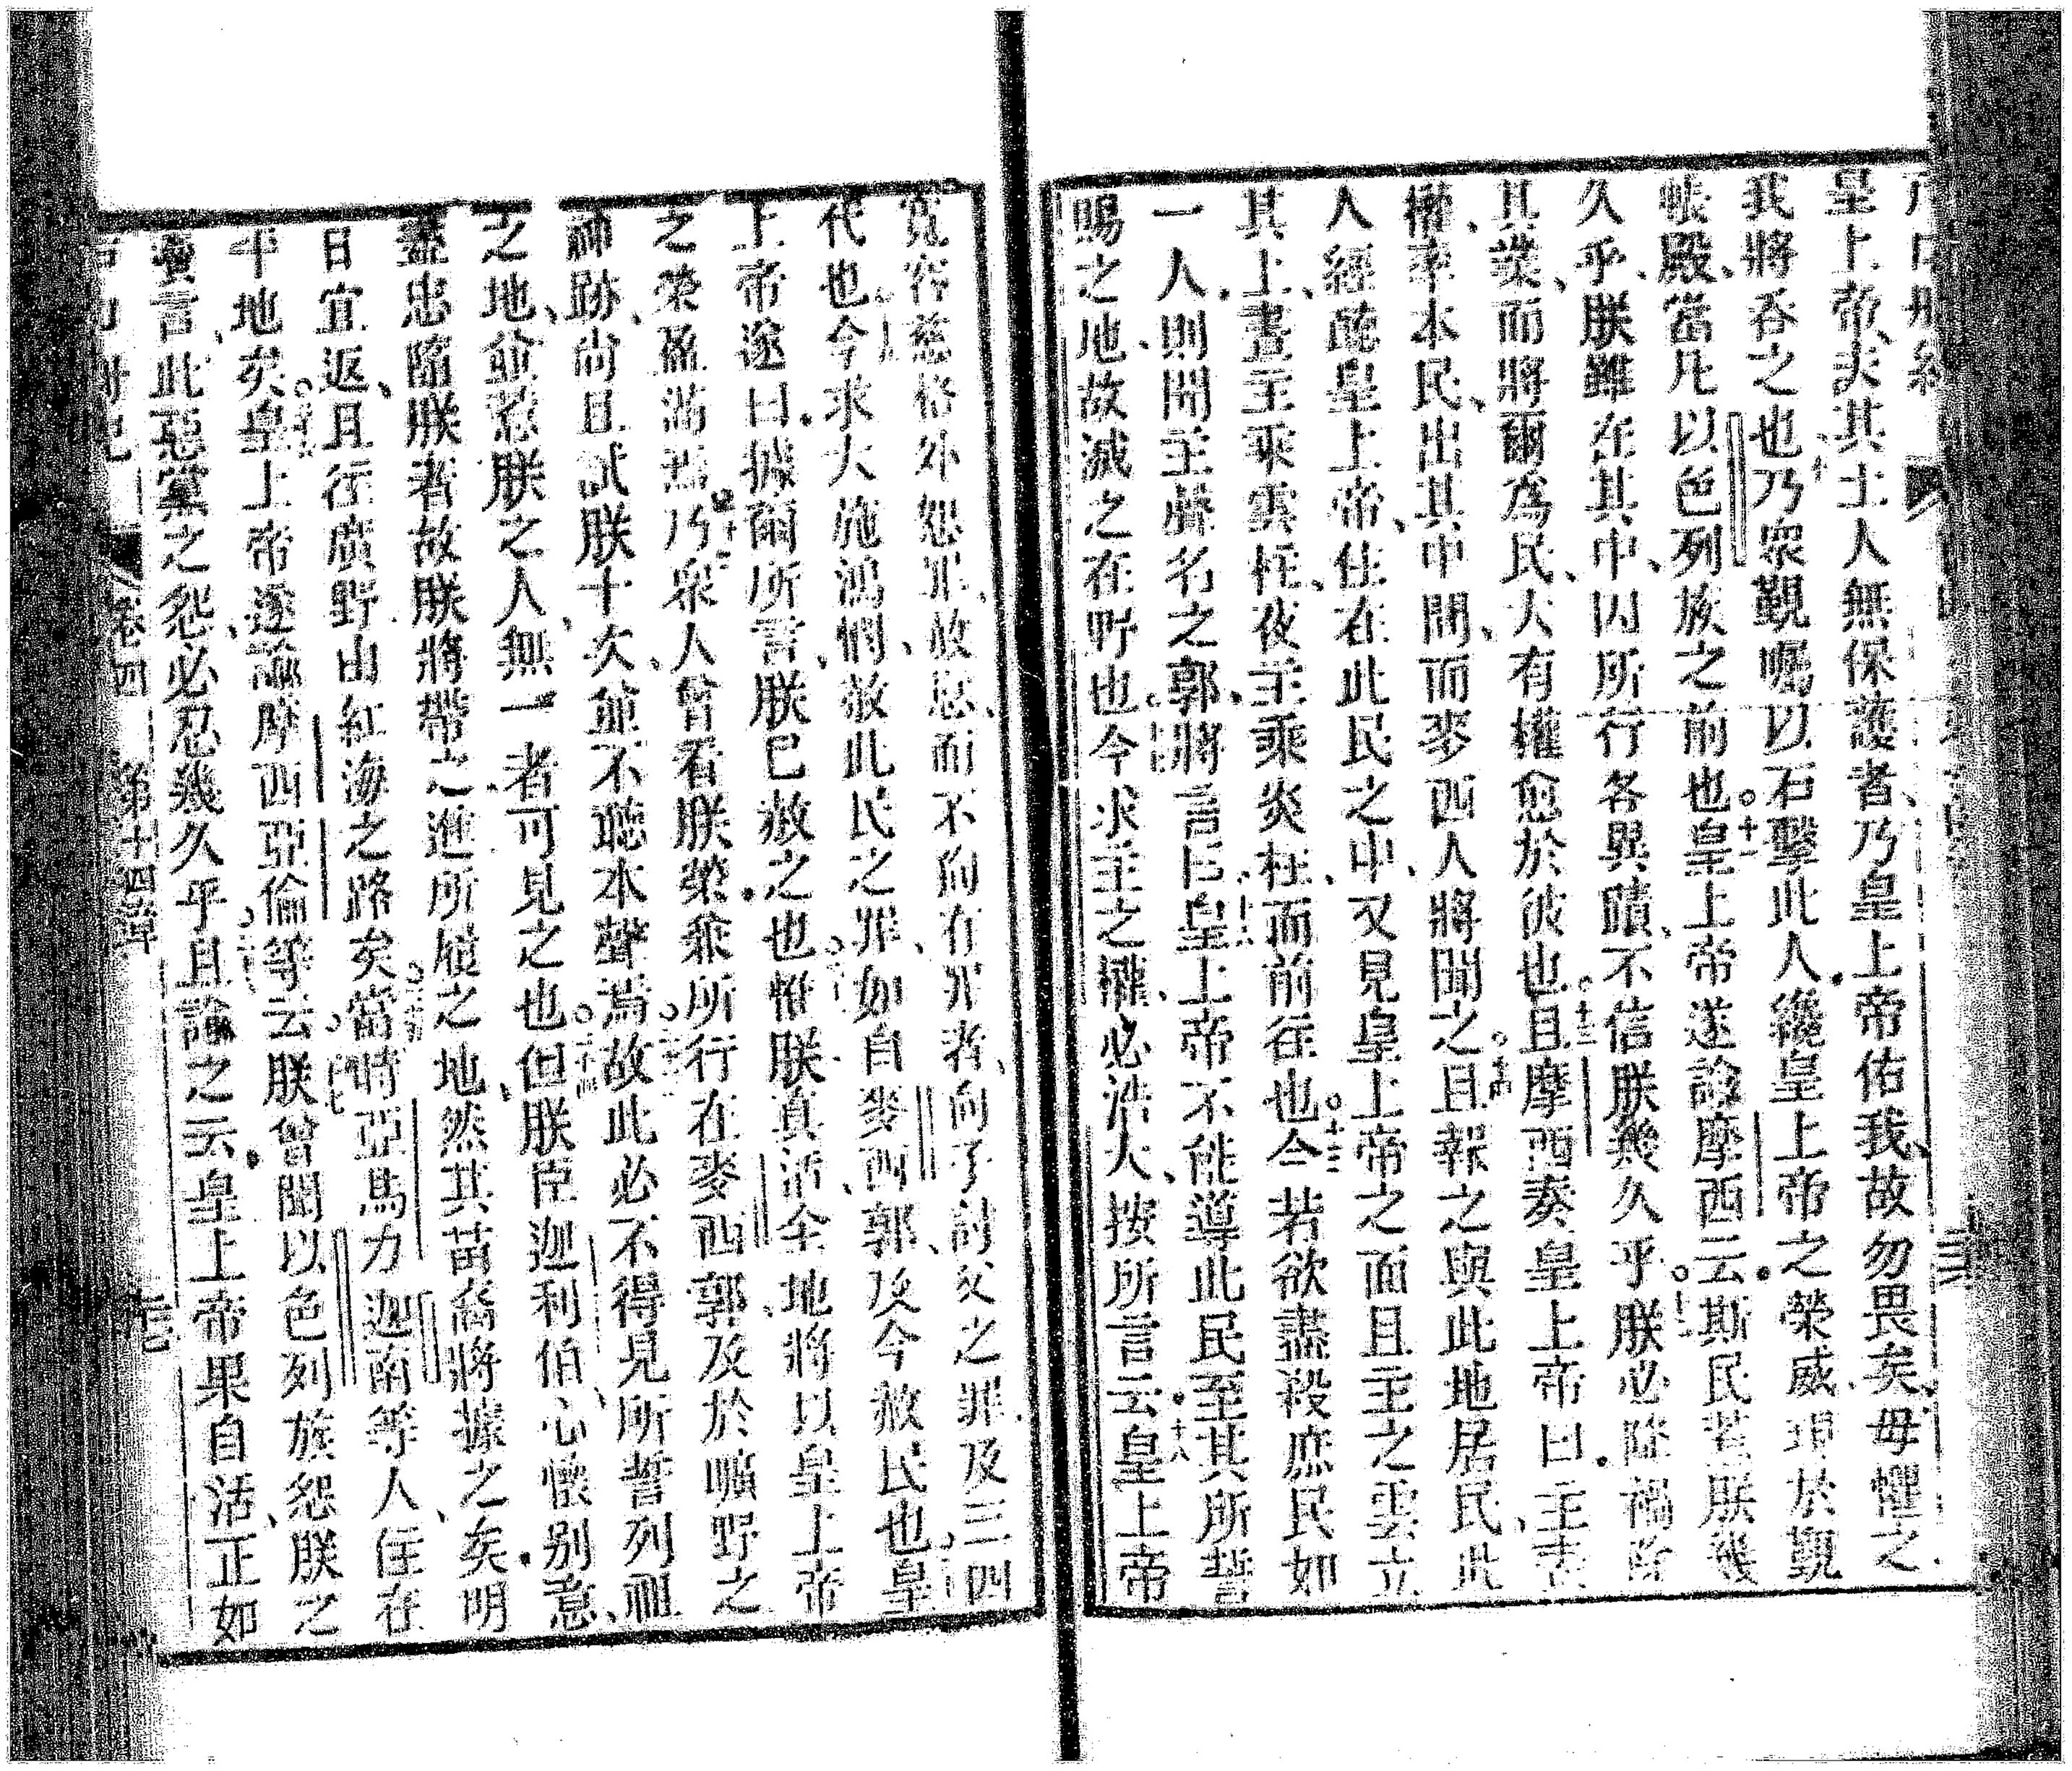 皇上帝、夫其土人無保護者、乃皇上帝佑我、故勿畏矣、毋懼之
我將吞之也。乃眾覲囑以石擊此人。纔皇上帝之榮威現於覲
帳殿、當凡以色列族之前也。十一皇上帝遂諭摩西云。斯民若朕幾
久乎、朕雖在其中、因所行各異蹟、不信朕幾久乎。朕必降禍除
其業、而將爾為民、大有權愈於彼也。十三且摩西奏皇上帝曰。主素
權、率本民、出其中間、而麥西人將聞之。十四且報之與此地居民、此
人經聽皇上帝、住在此民之中、又見皇上帝之面、且主之雲立
其上、晝主乘雲柱、夜主乘炎柱而前往也。十五今若欲盡殺庶民如
一人、則聞主聲名之郭、將言曰、皇上帝不能導此民至其所誓
賜之地、故滅之在野也。十七今求主之權、必浩大、按所言云。十八皇上帝
寬容慈、格外恕罪、赦惡、而不向有罪者、向子討父之罪、及三四
代也。今求大施鴻憫、赦此民之罪、如自麥西郭、及今赦民也。皇
上帝遂曰。據爾所言、朕已赦之也。惟朕真活、全地將以皇上帝
之榮盈滿焉。乃眾人曾看朕榮、兼所行在麥西郭及於曠野之
神跡、尚且試朕十次、並不聽本聲焉。故此必不得見所誓列祖
之地、並惹朕之人、無一者可見之也。但朕臣迦利伯、心懷別意、
盡忠隨朕者、故朕將帶之進所履之地、然其苗裔將據之矣。明
日宜返、且行廣野由紅海之路矣。當時亞馬力迦南等人、住在
平地矣。皇上帝遂諭摩西亞倫等云。朕曾聞以色列族怨朕之
怨言、此惡黨之怨、必忍幾久乎。且諭之云。皇上帝果自活、正如
卷四 第十四章